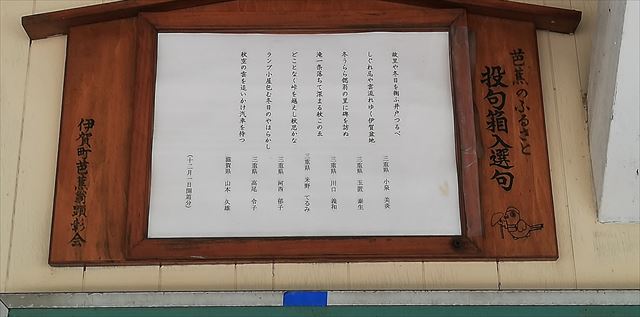 芭蕉のふるさと
投句箱入選句
故里や冬日を掬ふ井戸つるべ
三重県 小泉 美炎
しぐれ馬や雲流れゆく伊賀盆地
三重県 玉置 泰生
冬うらら偲翁の里に碑を訪ぬ
三重県 川口 義和
滝一条落ちて深まる秋この正
三重県 米野 てるみ
どことなく峠を越えし秋思かな
三重県 河西 郁子
ランプ小屋包む冬日のやはらかし
三重県 高尾 令子
秋空の雲を追いかけ汽車を待つ
滋賀県 山本 久雄
(十二月一日開箱分)
伊賀町芭蕉翁顕彰会